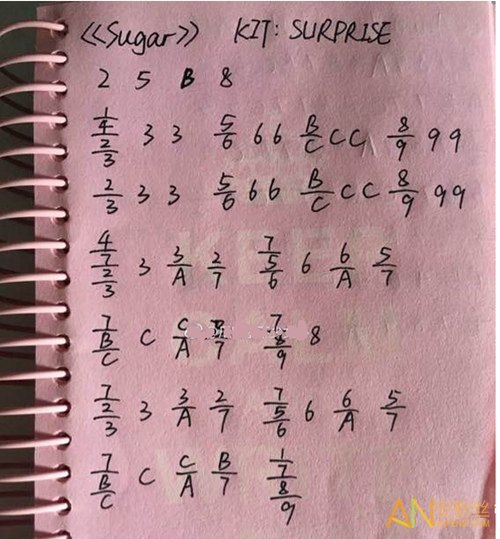 《Sugar》 KIT: SURPRISE
2 5 B 8
1/4/2/3 3 3 5/6 6 6 B/C C C 8/9 9 9
2/3 3 3 5/6 6 6 B/C C C 8/9 9 9
4/7/2/3 3 3/A 2/7 7/5/6 6 6/A 5/7
7/B/C C C/A B/7 7/8/9 8
7/2/3 3 3/A 2/7 7/5/6 6 6/A 5/7
7/B/C C C/A B/7 1/7/8/9
KEEP
CALM
AN